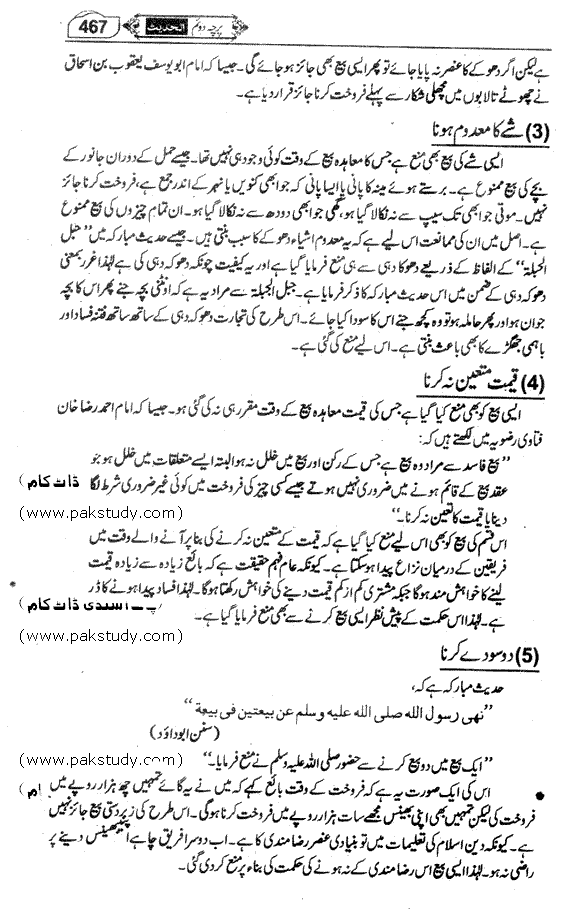 467 الحدیث پرچہ دوم
ہے لیکن اگر دھوکے کا عنصر نہ پایا جائے تو پھر ایسی بیع بھی جائز ہو جائے گی۔ جیسا کہ امام ابو یوسف یعقوب بن اسحاق
نے چھوٹے تالابوں میں مچھلی شکار سے پہلے فروخت کرنا جائز قرار دیا ہے۔
(3) شے کا معدوم ہونا
ایسی شے کی بیع بھی منع ہے جس کا معاہدہ بیع کے وقت کوئی وجود ہی نہیں تھا۔ جیسے حمل کے دوران جانور کے
بچے کی بیع ممنوع ہے۔ برستے ہوئے مینہ کا پانی یا ایسا پانی کہ جو ابھی کنویں یا نہر کے اندر جمع ہے، فروخت کرنا جائز
نہیں۔ موتی جو ابھی تک سیپ سے نہ نکالا گیا ہو، گھی جو ابھی دودھ سے نہ نکالا گیا ہو۔ ان تمام چیزوں کی بیع ممنوع
ہے۔ اصل میں ان کی ممانعت اس لیے ہے کہ یہ معدوم اشیاء دھوکہ کا سبب بنتی ہیں۔ جیسے حدیث مبارکہ میں "حبل
الحبلۃ" کے الفاظ کے ذریعے دھوکا دہی سے ہی منع فرمایا گیا ہے اور یہ کیفیت چونکہ دھوکہ دہی کی ہے لہٰذا غرر بمعنی
دھوکہ دہی کے ضمن میں اس حدیث مبارکہ کا ذکر فرمایا ہے۔ حبل الحبلۃ سے مراد یہ ہے کہ اونٹنی بچہ جنے پھر اس کا بچہ
جوان ہو اور پھر حاملہ ہو تو وہ کچھ جنے اس کا سودا کیا جائے۔ اس طرح کی تجارت دھوکہ دہی کے ساتھ ساتھ فتنہ فساد اور
باہمی جھگڑے کا بھی باعث بنتی ہے۔ اس لیے منع کی گئی ہے۔
(4) قیمت متعین نہ کرنا
ایسی بیع کو بھی منع کیا گیا ہے جس کی قیمت معاہدہ بیع کے وقت مقرر ہی نہ کی گئی ہو۔ جیسا کہ امام احمد رضا خان
فتاوی رضویہ میں لکھتے ہیں کہ:
"بیع فاسد سے مراد وہ بیع ہے جس کے رکن اور بیع میں خلل نہ ہو البتہ ایسے متعلقات میں خلل ہو جو
عقد بیع کے قائم ہونے میں ضروری نہیں ہوتے جیسے کسی چیز کی فروخت میں کوئی غیر ضروری شرط لگا ڈاٹ کام )
دینا یا قیمت کا تعین نہ کرنا۔" (www.pakstudy.com)
اس قسم کی بیع کو بھی اس لیے منع کیا گیا ہے کہ قیمت کے متعین نہ کرنے کی بنا پر آنے والے وقت میں
فریقین کے درمیان نزاع پیدا ہو سکتا ہے۔ کیونکہ عام فہم حقیقت ہے کہ بائع زیادہ سے زیادہ قیمت
لینے کا خواہش مند ہوگا جبکہ مشتری کم از کم قیمت دینے کی خواہش رکھتا ہوگا۔ لہٰذا فساد پیدا ہونے کا ڈر ڈاٹ کام )
ہے۔ لہٰذا اس حکمت کے پیش نظر ایسی بیع کرنے سے بھی منع فرمایا گیا ہے۔ (www.pakstudy.com)
(5) دو سودے کرنا
حدیث مبارکہ ہے کہ،
"نهى رسول الله صلى الله عليه وسلم عن بيعتين فى بيعة"
(سنن ابو داؤد)
"ایک بیع میں دو بیع کرنے سے حضور صلی اللہ علیہ وسلم نے منع فرمایا۔" (www.pakstudy.com)
اس کی ایک صورت یہ ہے کہ فروخت کے وقت بائع کہے کہ میں نے یہ گائے تمہیں چھ ہزار روپے میں
فروخت کی لیکن تمہیں بھی اپنی بھینس مجھے سات ہزار روپے میں فروخت کرنا ہوگی۔ اس طرح کی زبردستی بیع جائز نہیں
ہے۔ کیونکہ دین اسلام کی تعلیمات میں تو بنیادی عنصر رضامندی کا ہے۔ اب دوسرا فریق چاہے اپنی بھینس دینے پر
راضی نہ ہو۔ لہٰذا ایسی بیع اس رضامندی کے نہ ہونے کی حکمت کی بناء پر منع کر دی گئی۔